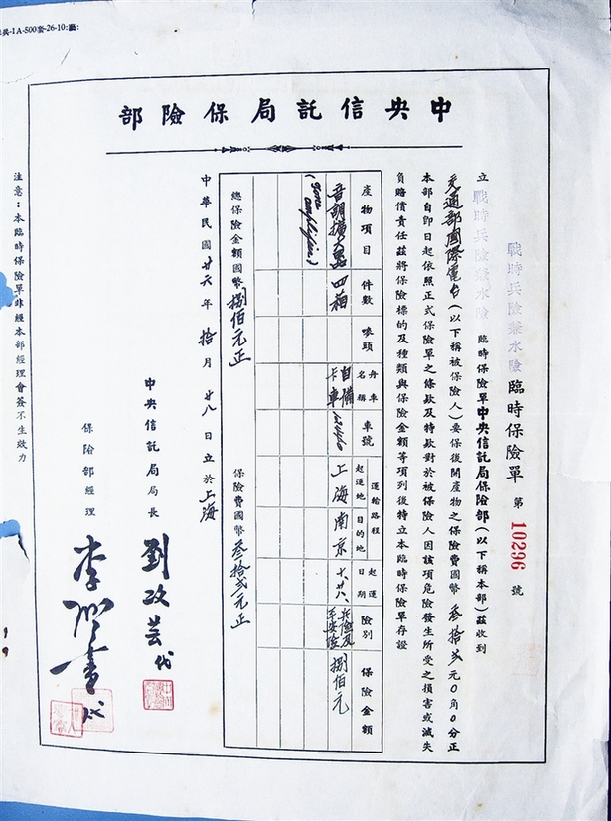 兵-1A-500套-26-10:
中央信託局保險部
戰時兵險兼水險臨時保險單 第 10296 號
立戰時兵險兼水險臨時保險單中央信託局保險部(以下稱本部)茲收到
交通部國際電台(以下稱被保險人)要保後開產物之保險費國幣叁拾貳元0角0分正
本部自即日起依照正式保險單之條款及特款對於被保險人因該項危險發生所受之損害或滅失
負賠償責任茲將保險標的及種類與保險金額等項列後特立本臨時保險單存證
產物項目 件數 嘜頭 舟車名稱 車號 運輸路程 起運地 目的地 起運日期 險別 保險金額
音調擴大器 四箱 自備卡車 上海 南京 十、廿八、 兵險及平安險 捌佰元
(Tone amplifier)
總保險金額國幣捌佰元正 保險費國幣叁拾貳元正
中華民國廿六年拾月廿八日立於上海
中央信託局局長 劉攻芸代
保險部經理 代
注意:本臨時保險單非經本部經理會簽不生效力